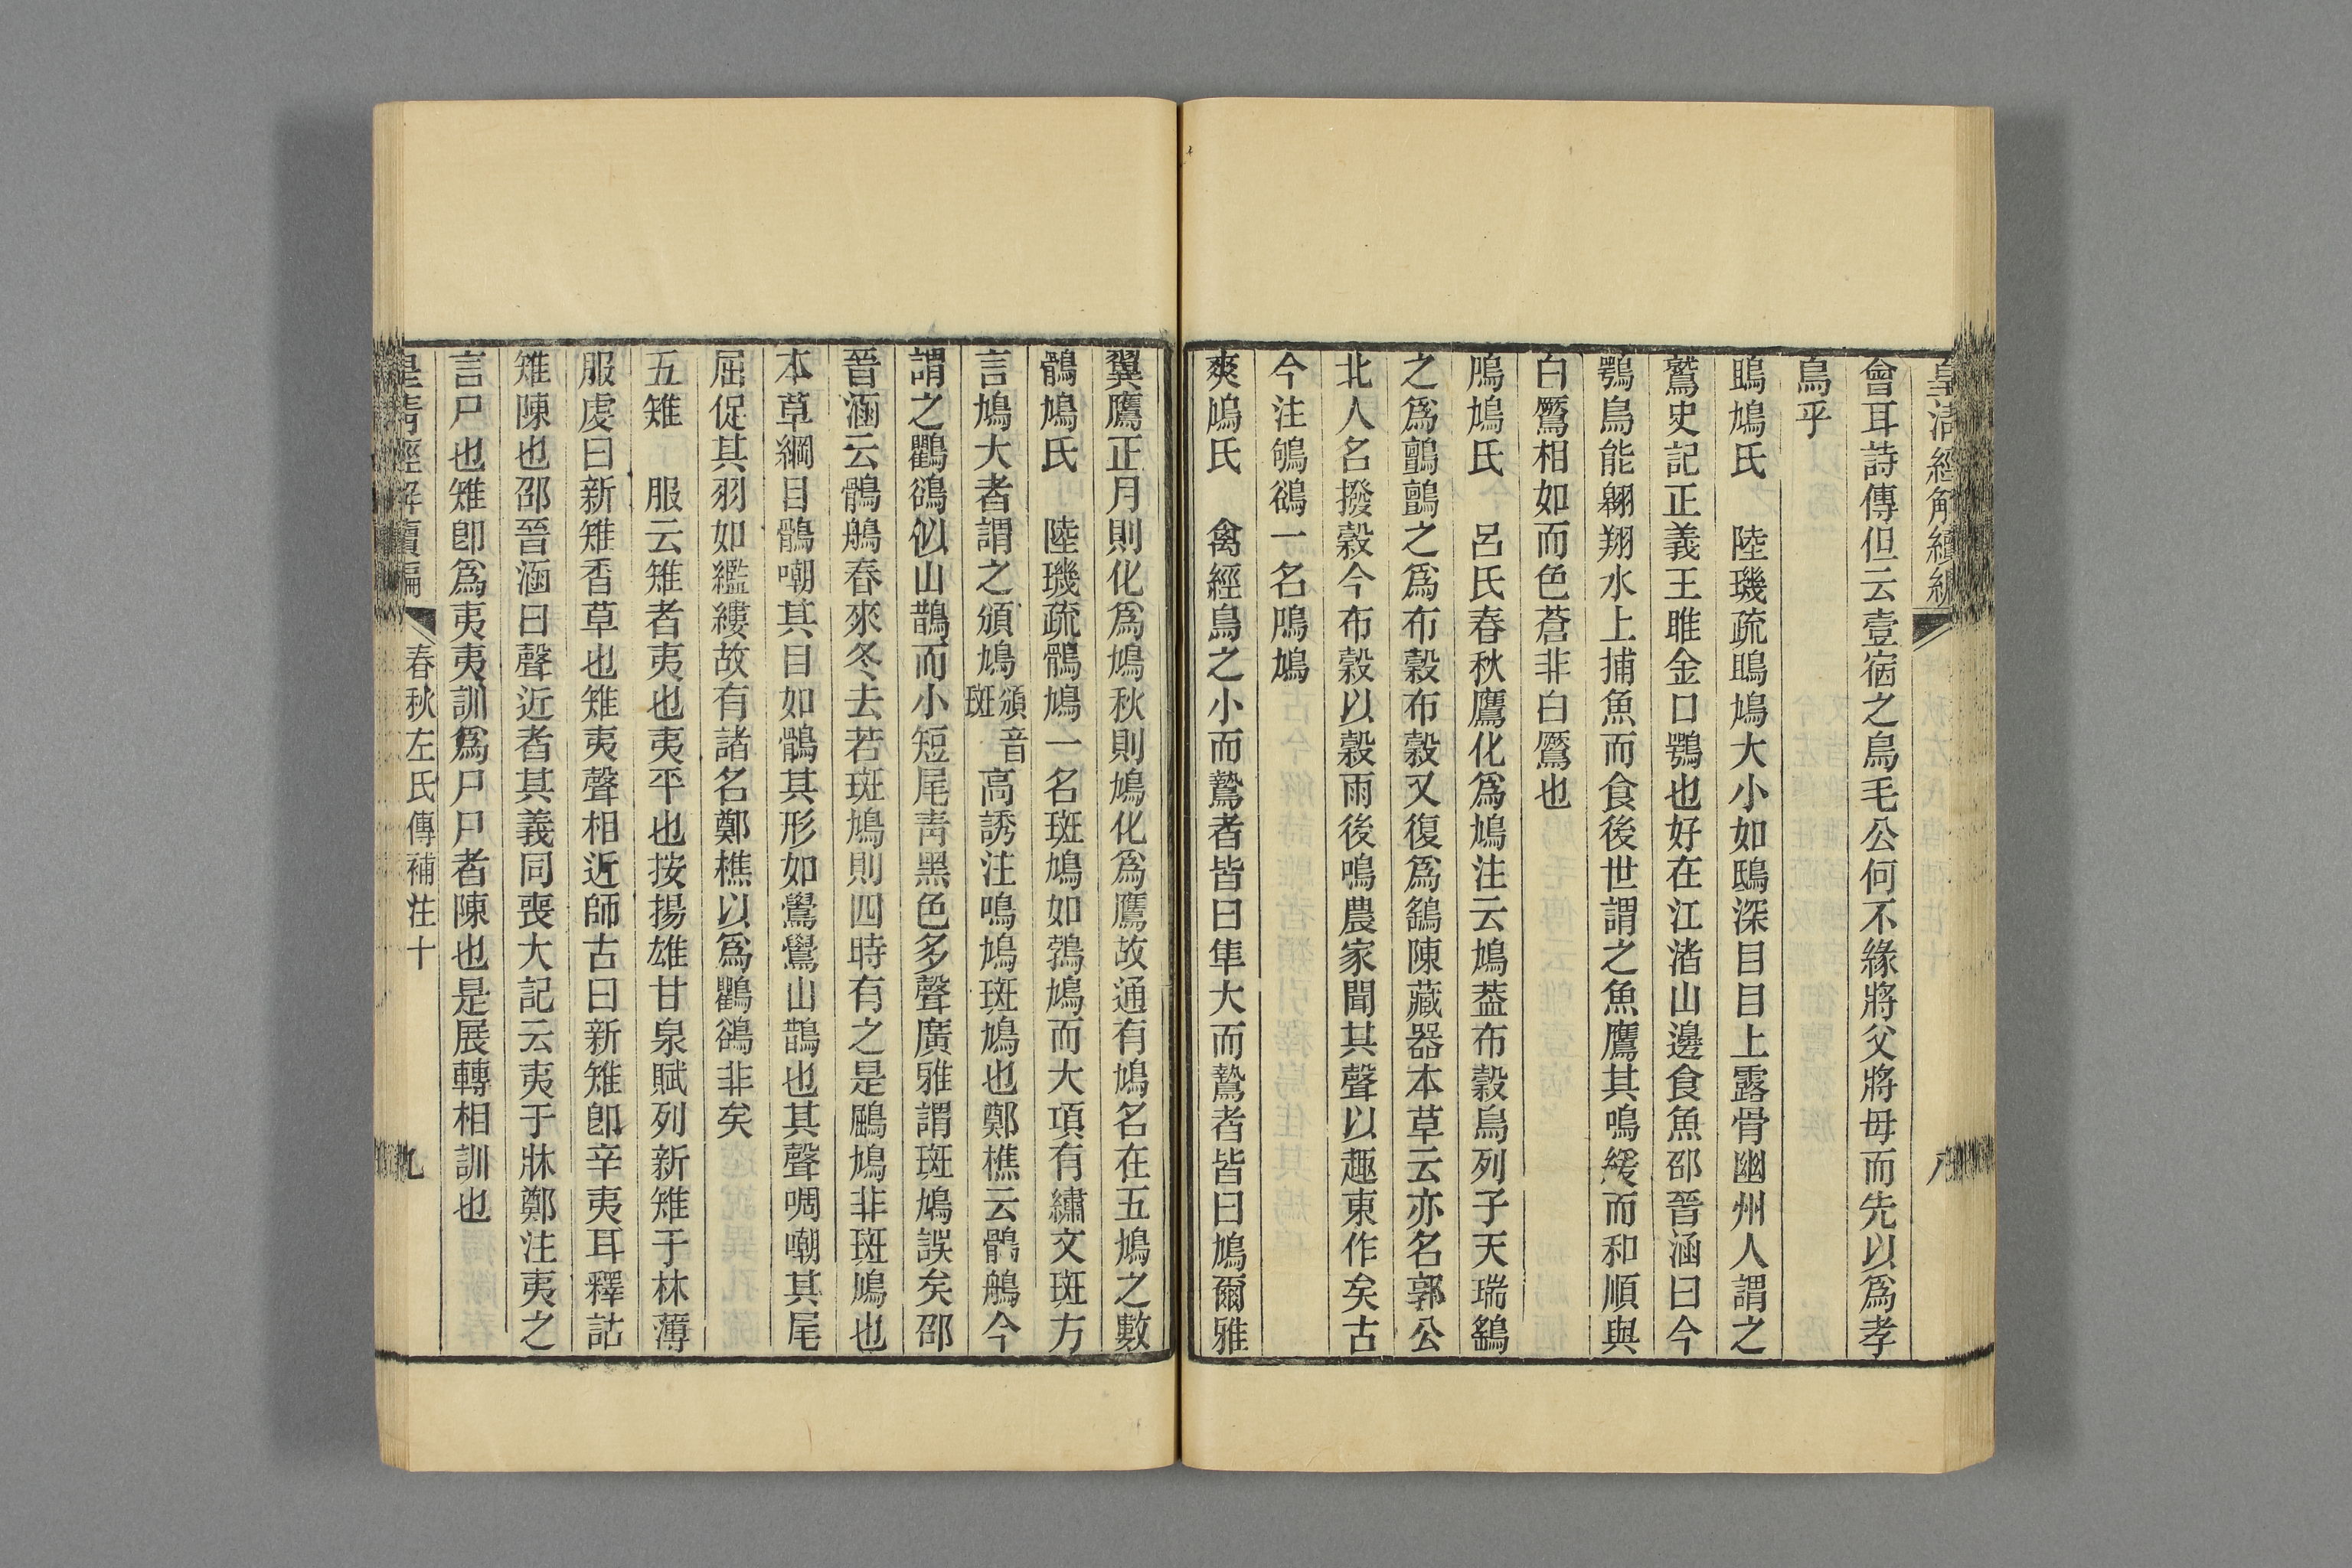 皇清經解續編
八
會耳詩傳但云壹宿之鳥毛公何不緣將父將母而先以爲孝
鳥乎
鴡鳩氏　陸璣疏鴡鳩大小如鴟深目目上露骨幽州人謂之
鷲史記正義王雎金口鶚也好在江渚山邊食魚邵晉涵曰今
鶚鳥能翱翔水上捕魚而食後世謂之魚鷹其鳴緩而和順與
白鷢相如而色蒼非白鷢也
鳲鳩氏　呂氏春秋鷹化爲鳩注云鳩蓋布穀鳥列子天瑞鷂
之爲鸇鸇之爲布穀布穀又復爲鷂陳藏器本草云亦名郭公
北人名撥穀今布穀以穀雨後鳴農家聞其聲以趣東作矣古
今注鴝鵒一名鳲鳩
爽鳩氏　禽經鳥之小而鷙者皆曰隼大而鷙者皆曰鳩爾雅
翼鷹正月則化爲鳩秋則鳩化爲鷹故通有鳩名在五鳩之數
鶻鳩氏　陸璣疏鶻鳩一名斑鳩如鶉鳩而大項有繡文斑方
言鳩大者謂之頒鳩頒音斑高誘注鳴鳩斑鳩也鄭樵云鶻鵃今
謂之鸜鵒似山鵲而小短尾靑黑色多聲廣雅謂斑鳩誤矣邵
晉涵云鶻鵃春來冬去若斑鳩則四時有之是鶌鳩非斑鳩也
本草綱目鶻嘲其目如鶻其形如鷽鷽山鵲也其聲啁嘲其尾
屈促其羽如繿縷故有諸名鄭樵以爲鸜鵒非矣
五雉　服云雉者夷也夷平也按揚雄甘泉賦列新雉于林薄
服虔曰新雉香草也雉夷聲相近師古曰新雉卽辛夷耳釋詁
雉陳也邵晉涵曰聲近者其義同喪大記云夷于牀鄭注夷之
言尸也雉卽爲夷夷訓爲尸尸者陳也是展轉相訓也
皇清經解續編
春秋左氏傳補注十
九